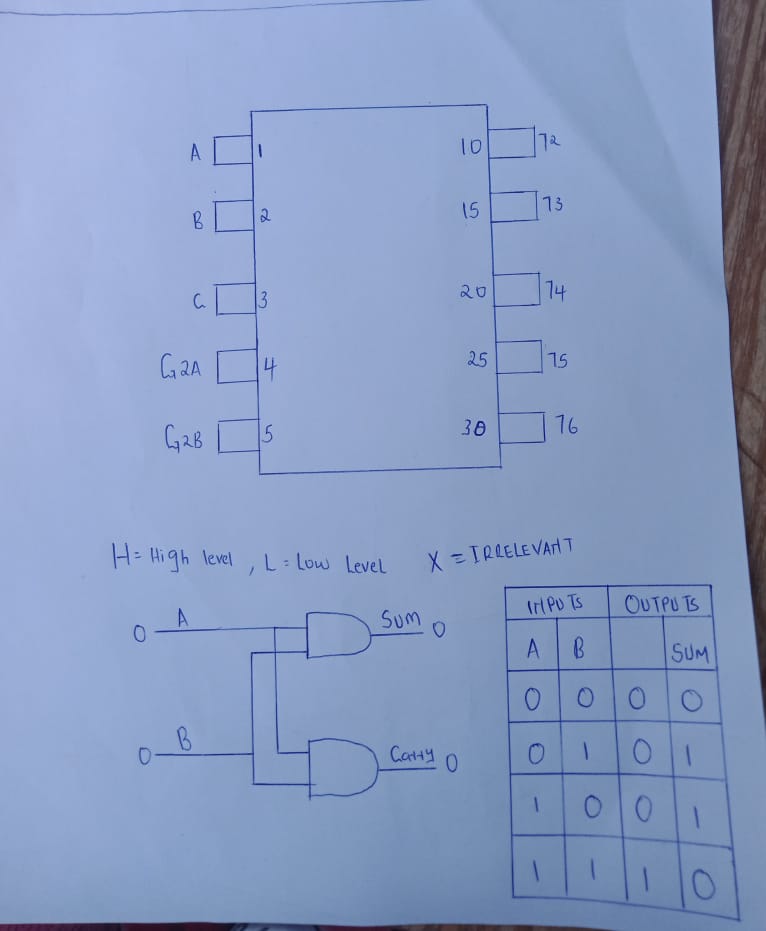 A 1 10 72
B 2 15 73
C 3 20 74
G2A 4 25 75
G2B 5 30 76
H = High level, L = Low Level X = IRRELEVANT
0 A Sum 0
0 B Carry 0
INPUTS OUTPUTS
A B SUM
0 0 0 0
0 1 0 1
1 0 0 1
1 1 1 0